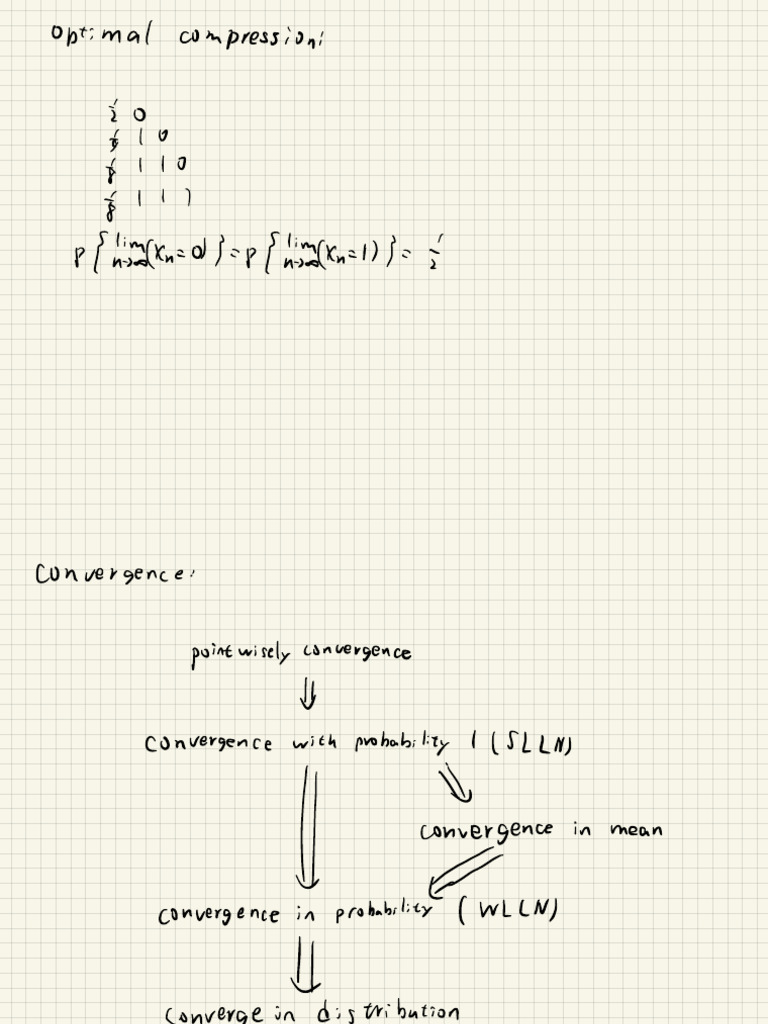 Optimal compression:
1/2 0
1/4 1 0
1/8 1 1 0
1/8 1 1 1
P{lim n→∞ (Xn=0)}=P{lim n→∞ (Xn=1)}= 1/2
Convergence:
pointwisely convergence
⇓
Convergence with probability 1 (SLLN)
convergence in mean
convergence in probability (WLLN)
⇓
Converge in distribution